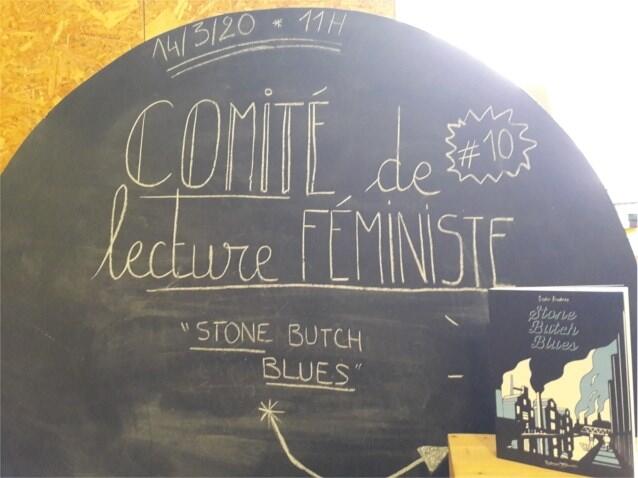 14/3/20 * 11H
COMITÉ de
#10
lecture FÉMINISTE
"STONE BUTCH
BLUES"
Stone
Butch
Blues